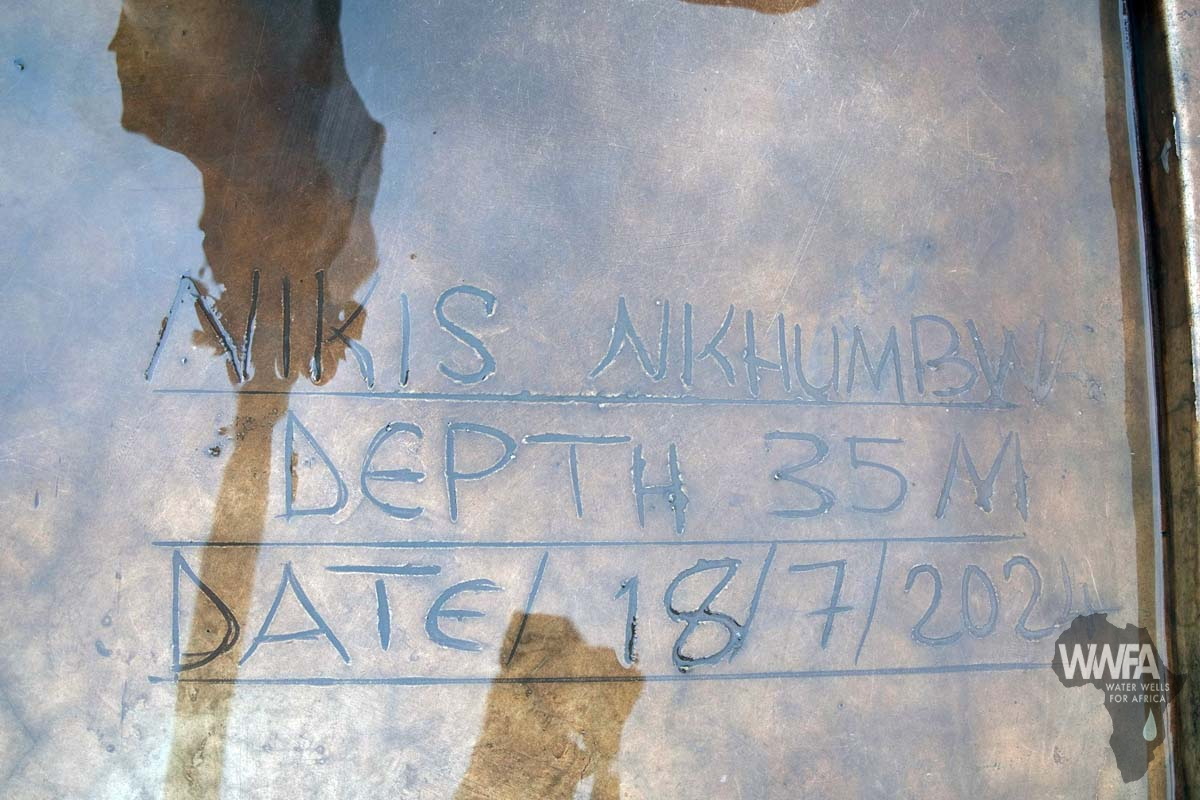 NIKIS NKHUMBWA
DEPTH 35 M
DATE/ 18/7/2024
WWFA
WATER WELLS
FOR AFRICA